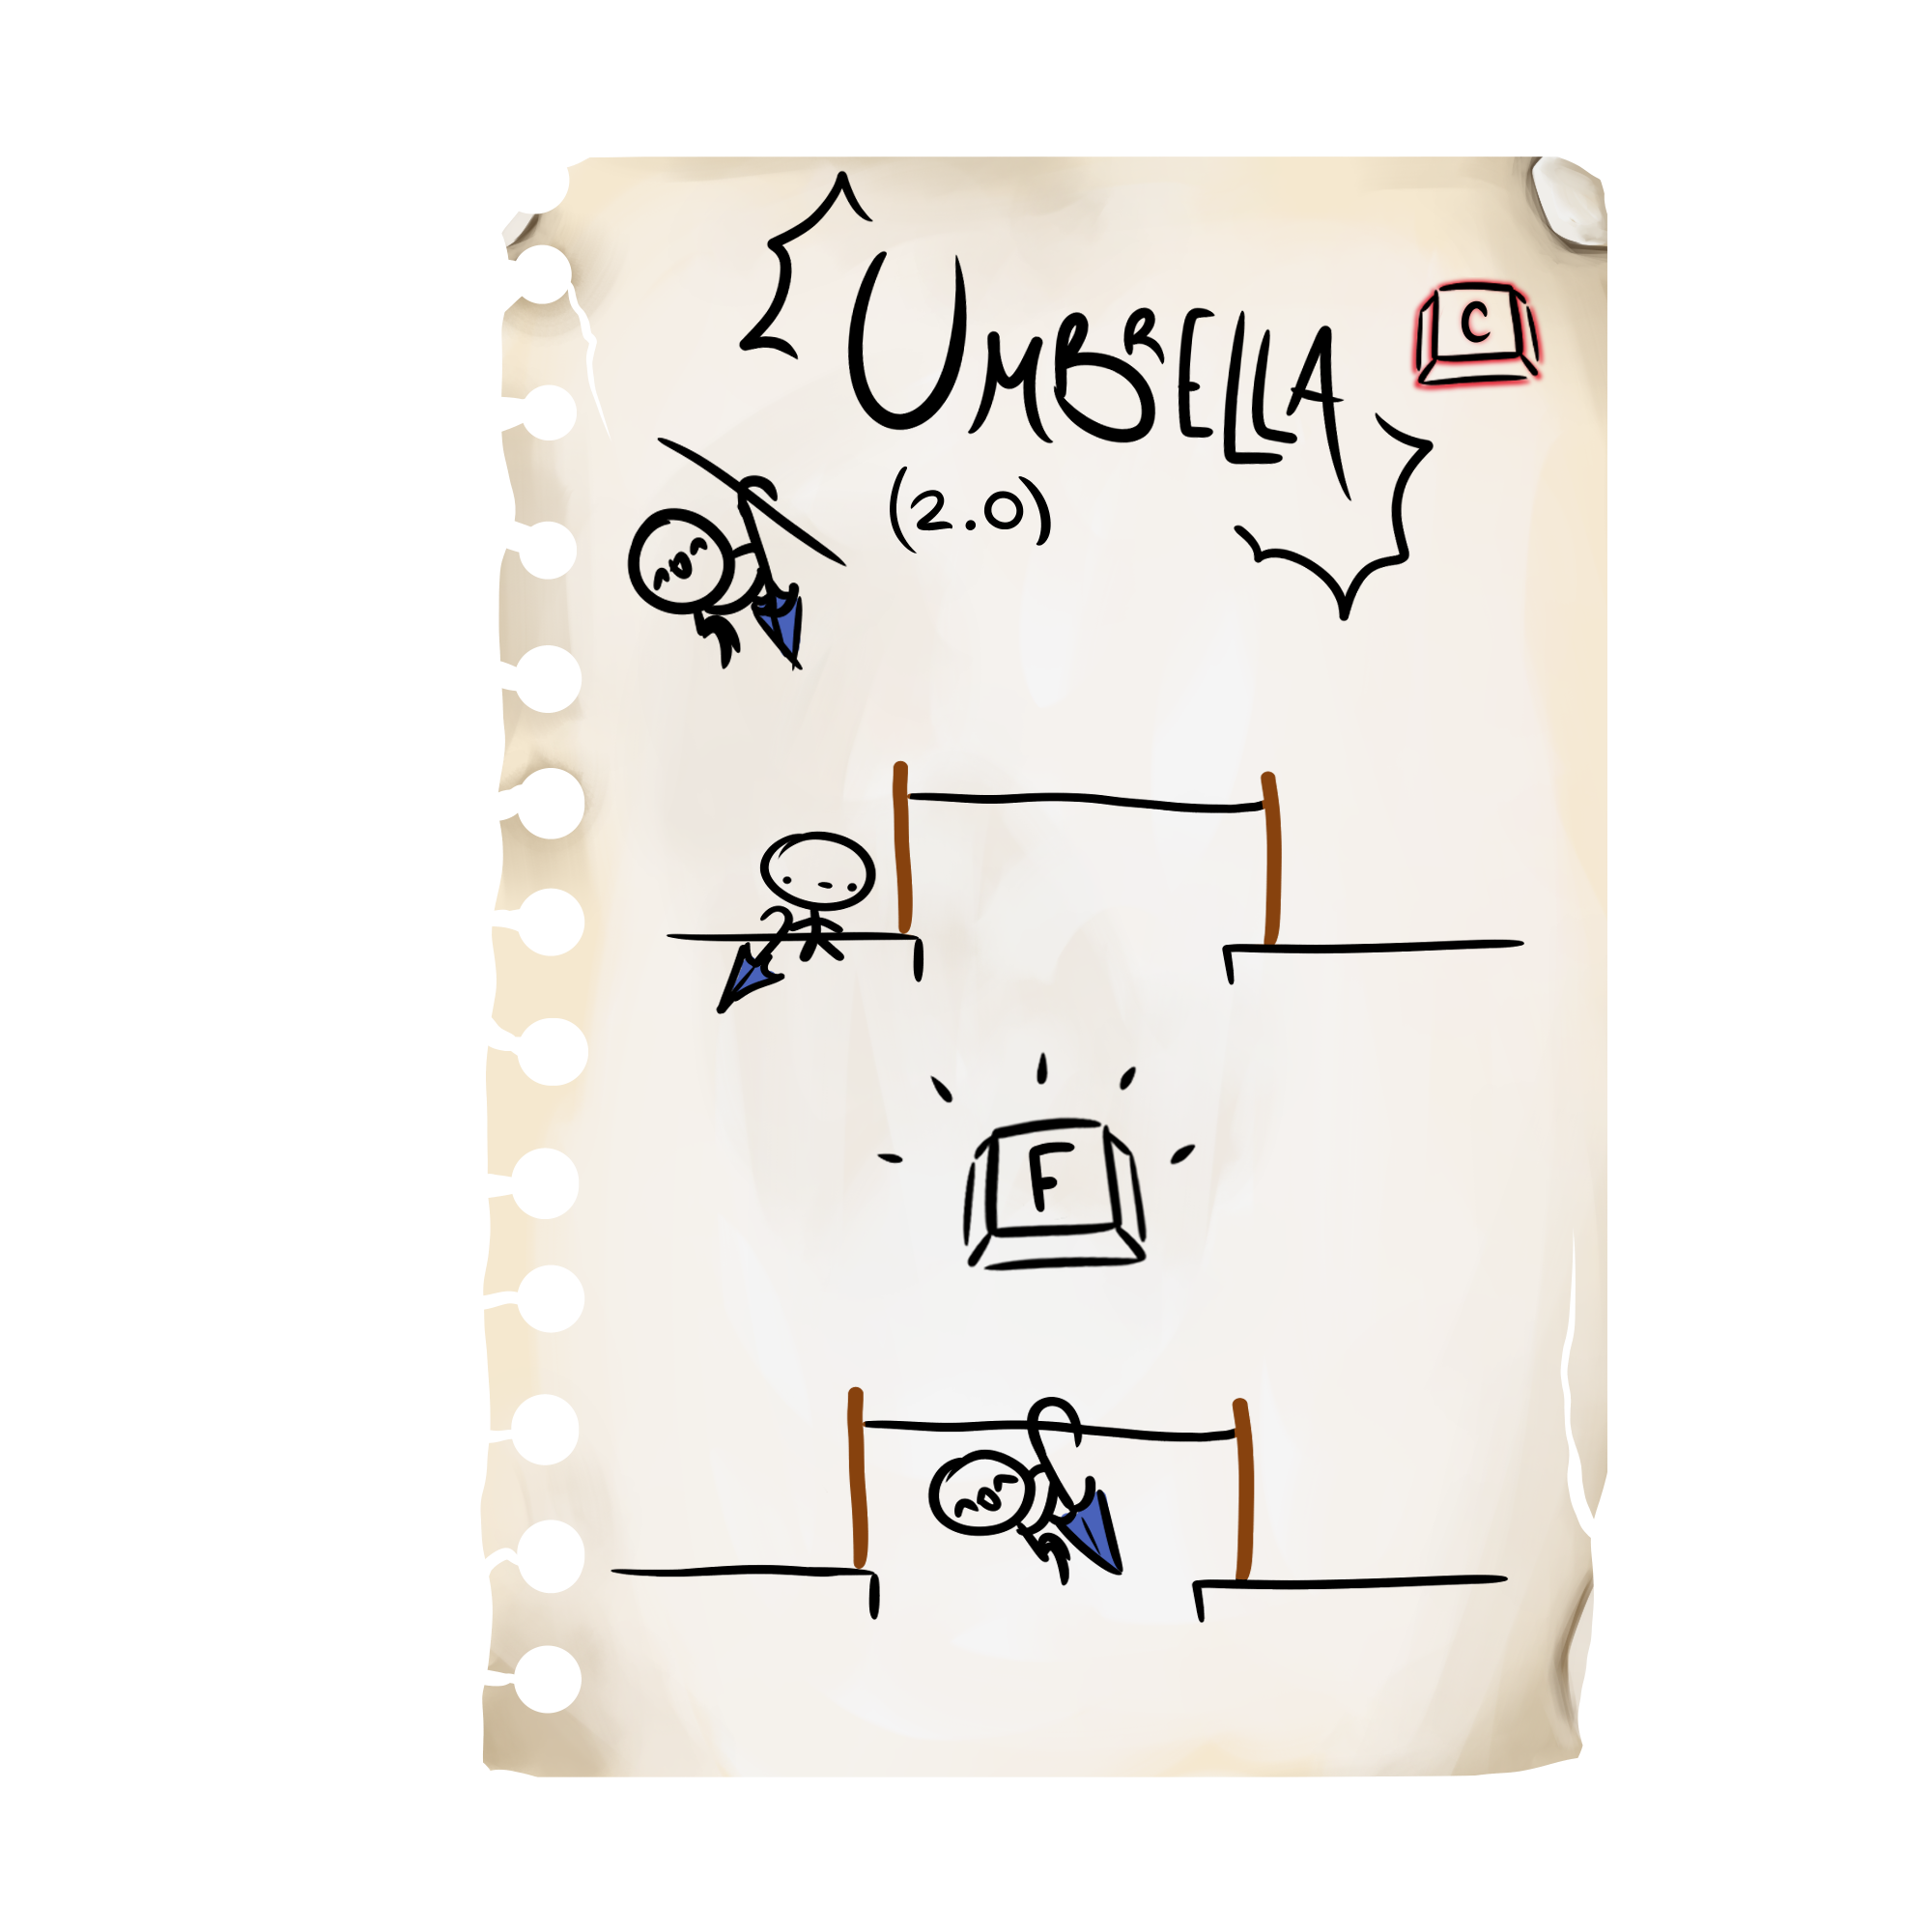 UMBRELLA
C
(2.0)
F